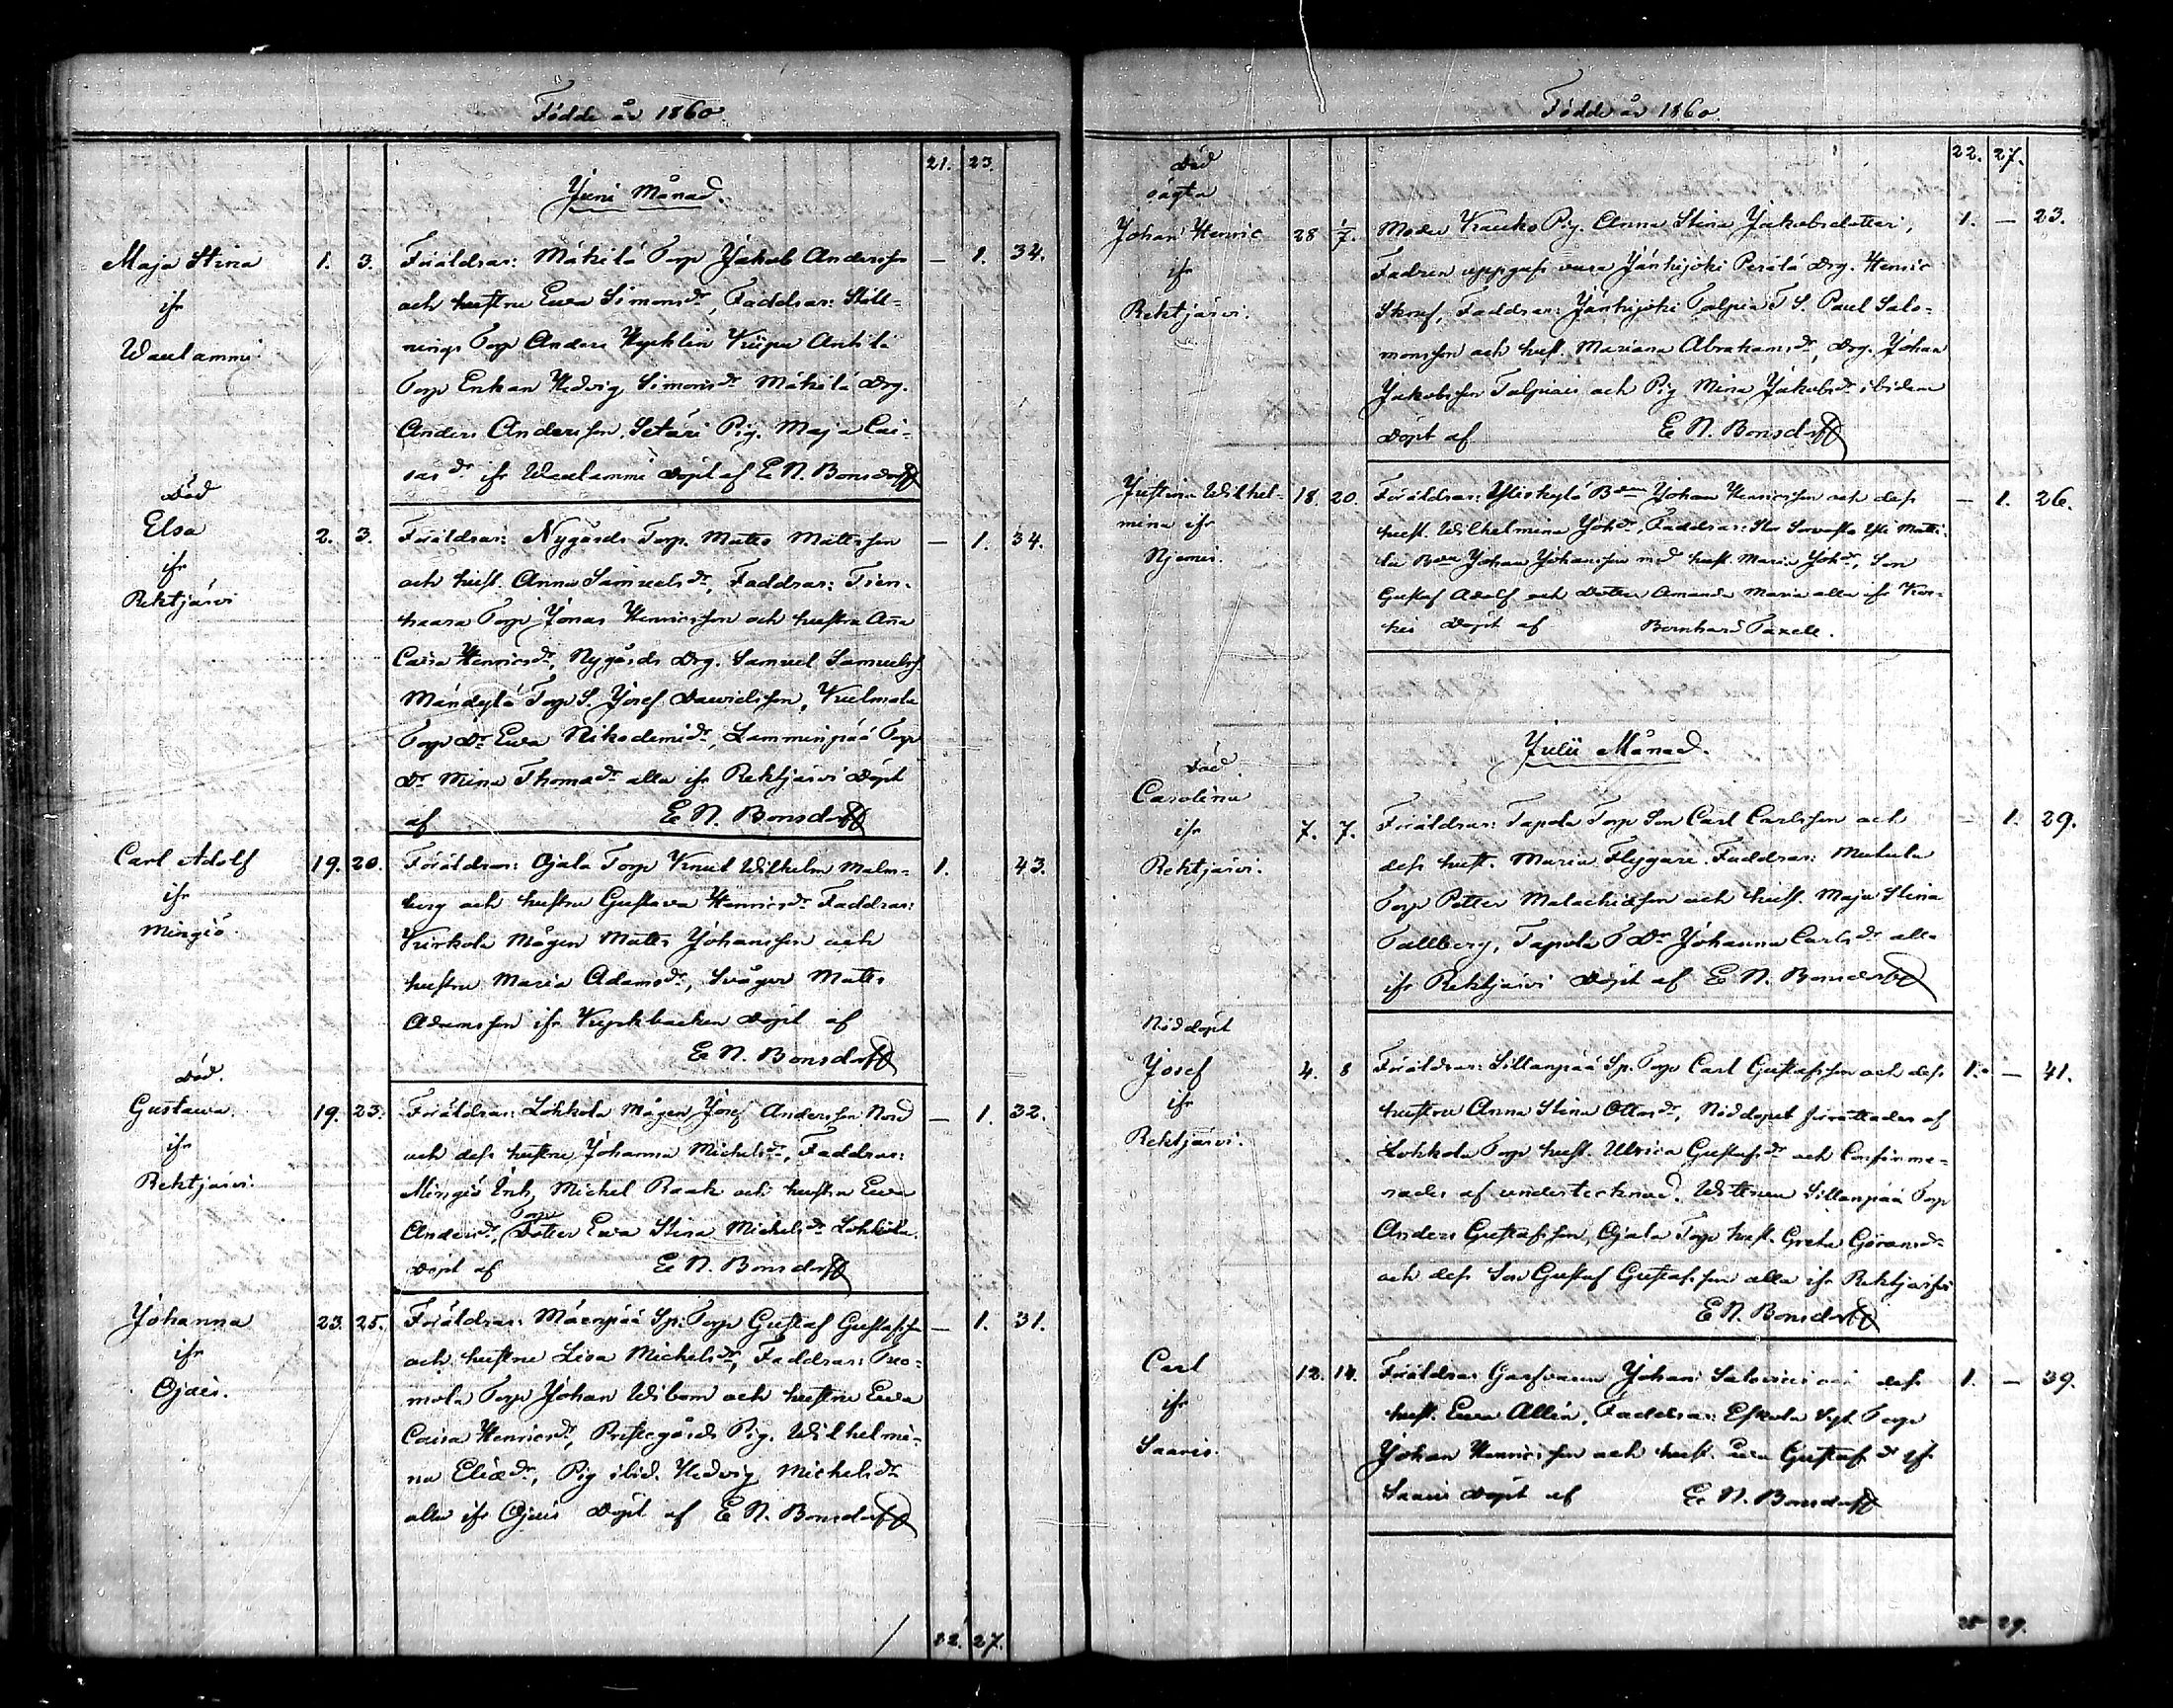 Födde år 1860
21. 23.
Juni Månad.
Maja Stina 1. 3. Föräldrar: Mäkilä Torp Jakob Andersson — 1. 34.
ifr och hustru Ewa Simonsdr, Faddrar: Ställ-
Waulammi nings Torp Anders Hycklin Kiipu Anttila
Torp Enkan Hedvig Simonsdr Mäkilä Drg.
Anders Andersson, Setäri Pig. Maja Cai-
sasdr ifr Waulammi Döpt af E N. Bonsdorff
Död
Elsa 2. 3. Föräldrar: Nygårds Torp. Matts Mattsson — 1. 34.
ifr och hust. Anna Samuelsdr, Faddrar: Tien-
Rehtjärvi haara Torp Jonas Henricsson och hustru Aña
Caisa Henricsdr, Nygårds Drg. Samuel Samuelss
Mändylä Torp S. Josef Davidsson, Kulmala
Torp Dr Ewa Nikodemidr, Lamminpää Torp
Dr Mina Thomadr alla ifr Rehtjärvi Döpt
af E N. Bonsdorff
Carl Adolf 19. 20. Föräldrar: Ojala Torp Knut Wilhelm Malm- 1. 43.
ifr berg och hustru Gustava Henricsdr Faddrar:
Mingiö. Kirkola Mågen Matts Johansson och
hustru Maria Adamsdr, Svåger Matts
Adamsson ifr Kyrkbacken Döpt af
E N. Bonsdorff
Död.
Gustawa. 19. 23. Föräldrar: Lohkola Mågen Josef Andersson Nord — 1. 32.
ifr och dess hustru Johanna Michelsdr, Faddrar:
Rehtjärvi. Mingiö Inh, Michel Raak och hustru Ewa
Andersdr, Torp Dotter Ewa Stina Michelsdr Lohkola.
Döpt af E N. Bonsdorff
Johanna 23. 25. Föräldrar: Mäenpää Sp. Torp Gustaf Gustafss — 1. 31.
ifr och hustru Lisa Michelsdr, Faddrar:
Ojäis. Torp Johan Wibom och hustru Ewa
Caisa Henricsdr, Prestegårds Pig. Wilhelmi-
na Eliædr, Pig ibid. Hedvig Michelsdr
alla ifr Ojäis Döpt af E N. Bonsdorff
22. 27.
Födde år 1860.
22. 27.
Död
oägta
Johan Henric 28 1/7. Moder Kauko Pig. Anna Stina Jakobsdotter, 1. — 23.
ifr Fadren uppgafs vara Jänhijoki Perälä Drg. Henric
Rehtjärvi. Skruf, Faddrar: Jänhijoki Talpia T S. Paul Salo-
monsson och hust. Mariana Abrahamsdr, Drg. Johan
Jakobsson Talpiais och Pig Mina Jakobsdr ibidem
Döpt af E N. Bonsdorff
Justina Wilhel- 18. 20. Föräldrar: Yliskylä Bden Johan Henricsson och dess — 1. 26.
mina ifr hust. Wilhelmina Johdr, Faddrar: Matti-
Njemis. la Bden Johan Johansson med hust. Maria Johdr, Son
Gustaf Adolf och Dotter Amanda Maria alla ifr
Döpt af Bernhard Taxell.
Julii Månad.
Död.
Carolina 7. 7. Föräldrar: Tapola Torp Son Carl Carlsson och — 1. 29.
ifr dess hust. Maria Flygare. Faddrar: Mukula
Rehtjärvi. Torp Petter Malachiasson och hust. Maja Stina
Tallberg, Tapola T Dr Johanna Carlsdr alla
ifr Rehtjärvi Döpt af E N. Bonsdorff
Nöddöpt
Josef 4. 8 Föräldrar: Sillanpää Sp. Torp Carl Gustafsson och dess 1. — 41.
ifr hustru Anna Stina Ottosdr, Nöddopet förrättades af
Rehtjärvi. Lohkola Torp hust. Ulrica Gustafsdr och Confirme-
rades af undertecknad. Wittnen Sillanpää Torp
Anders Gustafsson, Ojala Torp hust. Greta Göransdr
och dess Son Gustaf Gustafsson alla ifr Rehtjärfvi
E N. Bonsdorff
Carl 12. 14. Föräldrar Garfvaren Johan Salovius och dess 1. — 39.
ifr hust. Ewa Allén, Faddrar: Eskola Torp
Saaris. Johan Henricsson och hust. Ewa Gustafsdr ifr
Saaris Döpt af E N. Bonsdorff
25 29.